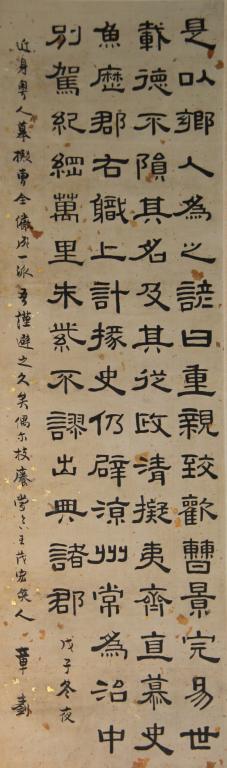 是以鄉人為之諺曰重親致歡曹景完易世
載德不隕其名及其從政清擬夷齊直慕史
魚歷郡右職上計掾史仍辟涼州常為治中
別駕紀綱萬里朱紫不謬出典諸郡
戊子冬夜
近身粵人摹擬曹全儼成一派吾謹避之久矣偶尔技癢
王茂宏矣人
章